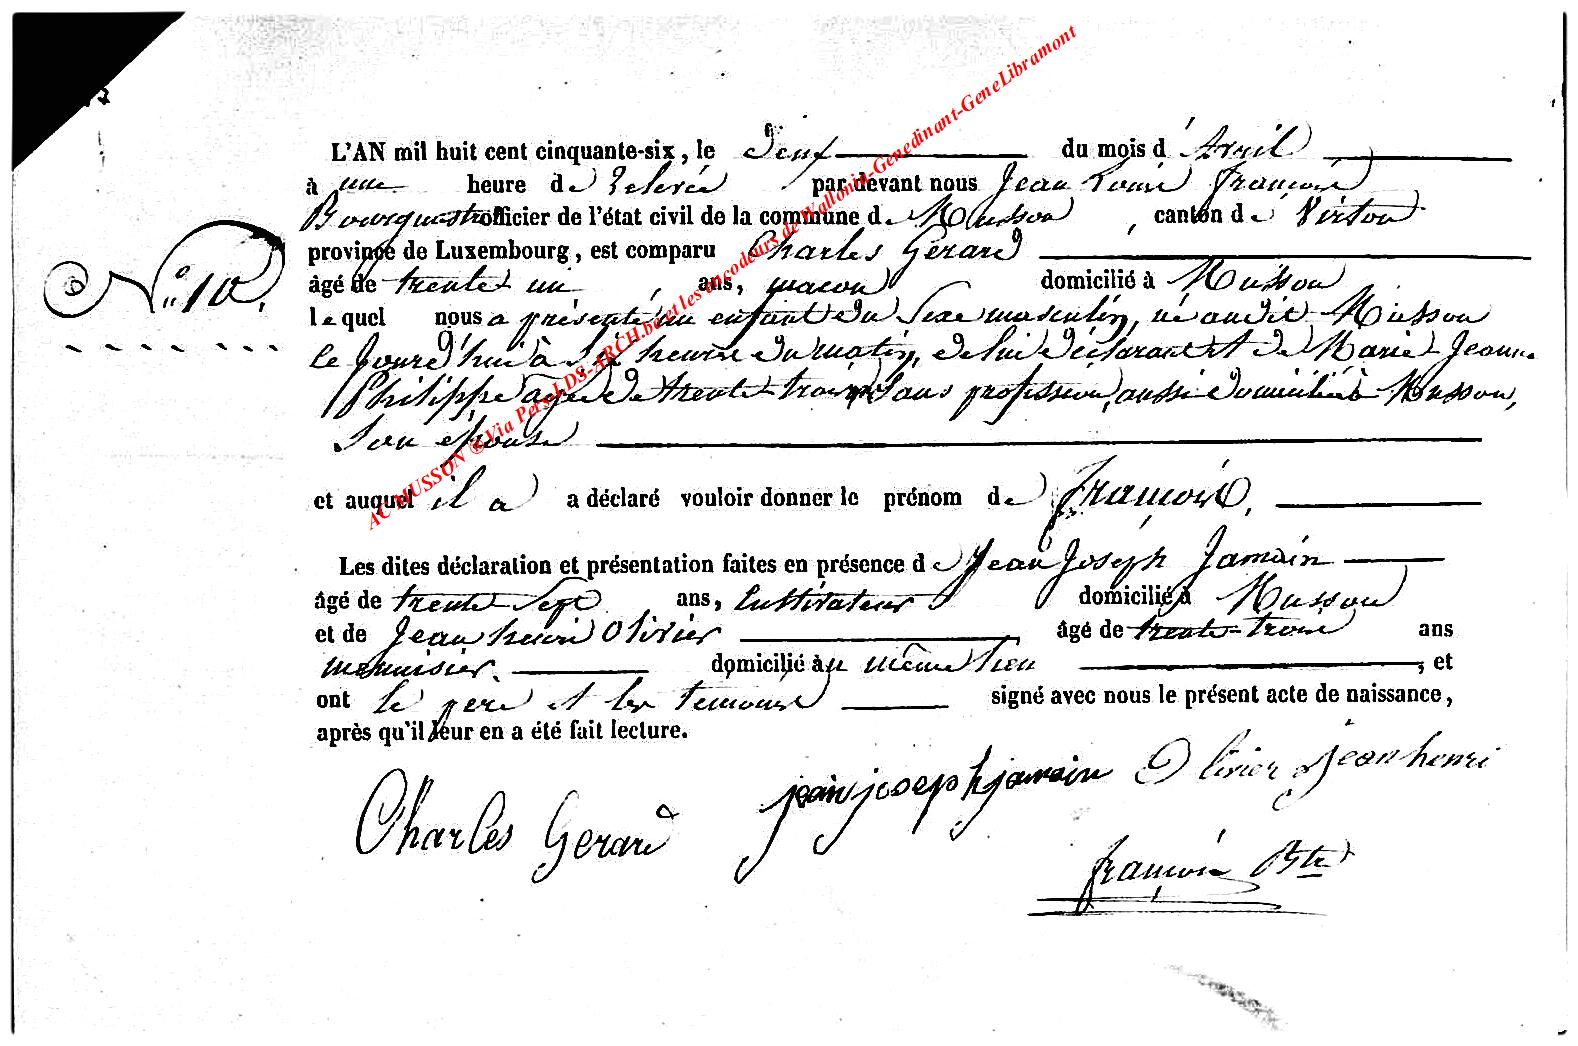 L'AN mil huit cent cinquante-six, le Deux du mois d'Avril
à une heure de relevée par devant nous Jean Louis François
Bourguignon officier de l'état civil de la commune de Musson, canton de Virton
province de Luxembourg, est comparu Charles Gérard
N° 10.
âgé de trente un ans, macon domicilié à Musson
lequel nous a présenté un enfant du Sexe masculin, né audit Musson
le jourd'hui à Six heures du matin, de lui déclarant et de Marie Jeanne
Philippe agée de trente-trois ans Sans profession, aussi domiciliée à Musson,
Son épouse
et auquel il a a déclaré vouloir donner le prénom de François.
Les dites déclaration et présentation faites en présence de Jean Joseph Jamain
âgé de trente Sept ans, Cultivateur domicilié à Musson
et de Jean henri Olivier âgé de trente-trois ans
menuisier. domicilié au même lieu, et
ont le pere et les temoins signé avec nous le présent acte de naissance,
après qu'il leur en a été fait lecture.
jean joseph jamain Olivier jean henri
Charles Gerard
françois
AC MUSSON @ Via Pers LDS-ARCH.be et les encodeurs de Wallonia-Genedinant-GeneLibramont